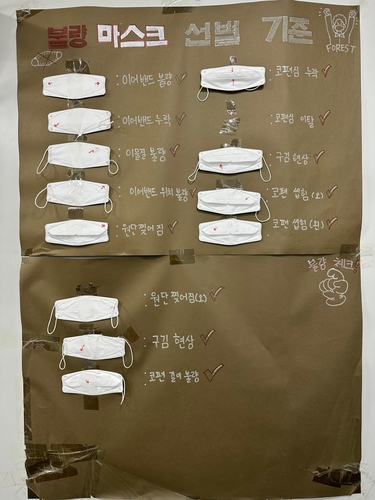 불량 마스크 선별 기준
FOREST
: 이어밴드 불량
: 이어밴드 누락
: 이물질 불량
: 이어밴드 위치 불량
: 원단 찢어짐
: 코편심 누락
: 코편심 이탈
: 구김 현상
: 코편 씹힘(오)
: 코편 씹힘(왼)
불량 체크
: 원단 찢어짐(오)
: 구김 현상
: 코편 길이 불량